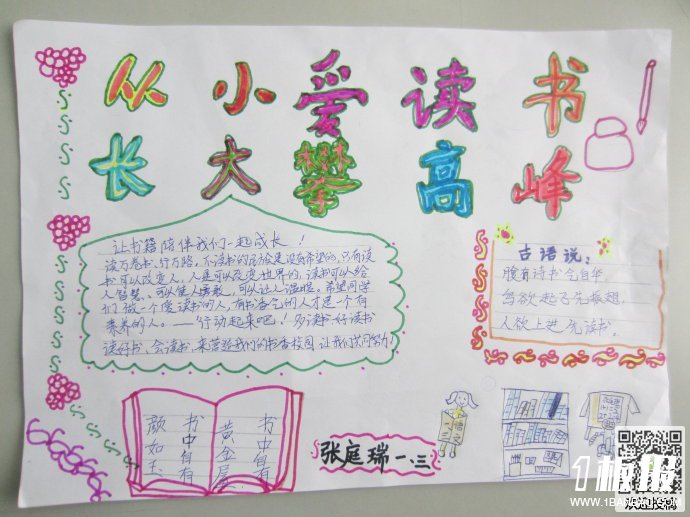 从小爱读书
长大攀高峰
让书籍陪伴我们一起成长！
读万卷书、行万路，不读书的民族是没有希望的，只有读
书可以改变人，人是可以改变世界的，读书可以给
人智慧、可以使人勇敢，可以让人温暖。希望同学
们做一个爱读书的人，有书香气的人才是一个有
素养的人。——行动起来吧！多读书、好读书
读好书、会读书，来营造我们的书香校园，让我们共同努力！
古语说：
腹有诗书气自华
鸟欲起飞先振翅，
人欲上进先读书。
书中自有
黄金屋
书中自有
颜如玉
张庭瑞 一.三
1板报
WWW.1BANBAO.COM
欢迎投稿